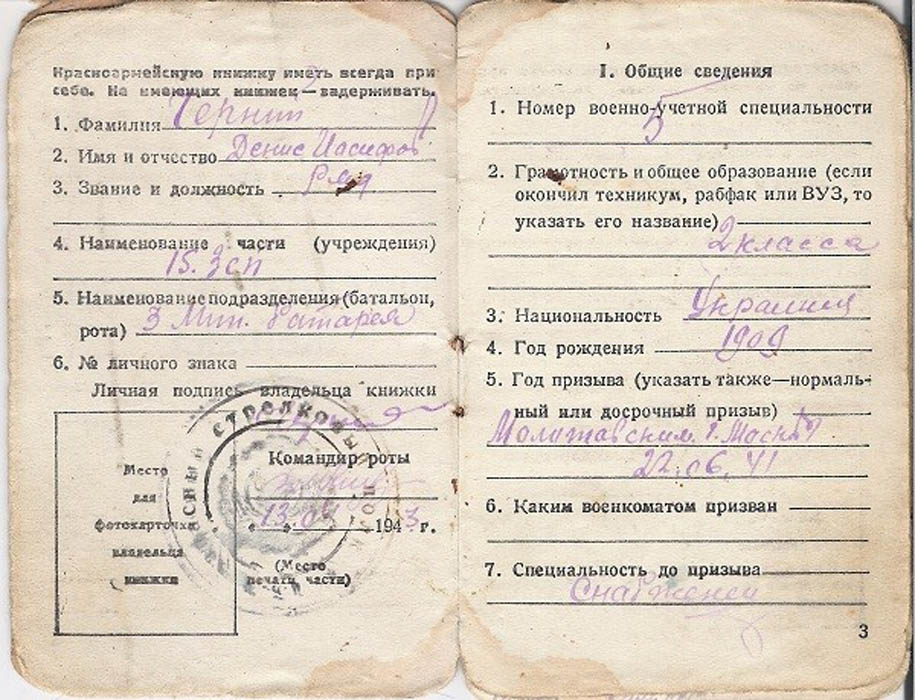 Красноармейскую книжку иметь всегда при
себе. Не имеющих книжек — задерживать.
1. Фамилия Черний
2. Имя и отчество Денис Иосифов
3. Звание и должность Ряд
4. Наименование части (учреждения)
15. Зсп
5. Наименование подразделения (батальон,
рота) 3 Мин. батарея
6. № личного знака
Личная подпись владельца книжки
Командир роты
13.04 1943 г.
(Место
печати части)
Место
для
фотокарточки
владельца
книжки
СТРЕЛКОВЫЙ
I. Общие сведения
1. Номер военно-учетной специальности
5
2. Грамотность и общее образование (если
окончил техникум, рабфак или ВУЗ, то
указать его название)
2 класса
3. Национальность Украинец
4. Год рождения 1909
5. Год призыва (указать также—нормаль-
ный или досрочный призыв)
г. Москвы
22.06.41
6. Каким военкоматом призван
7. Специальность до призыва
Снабженец
3